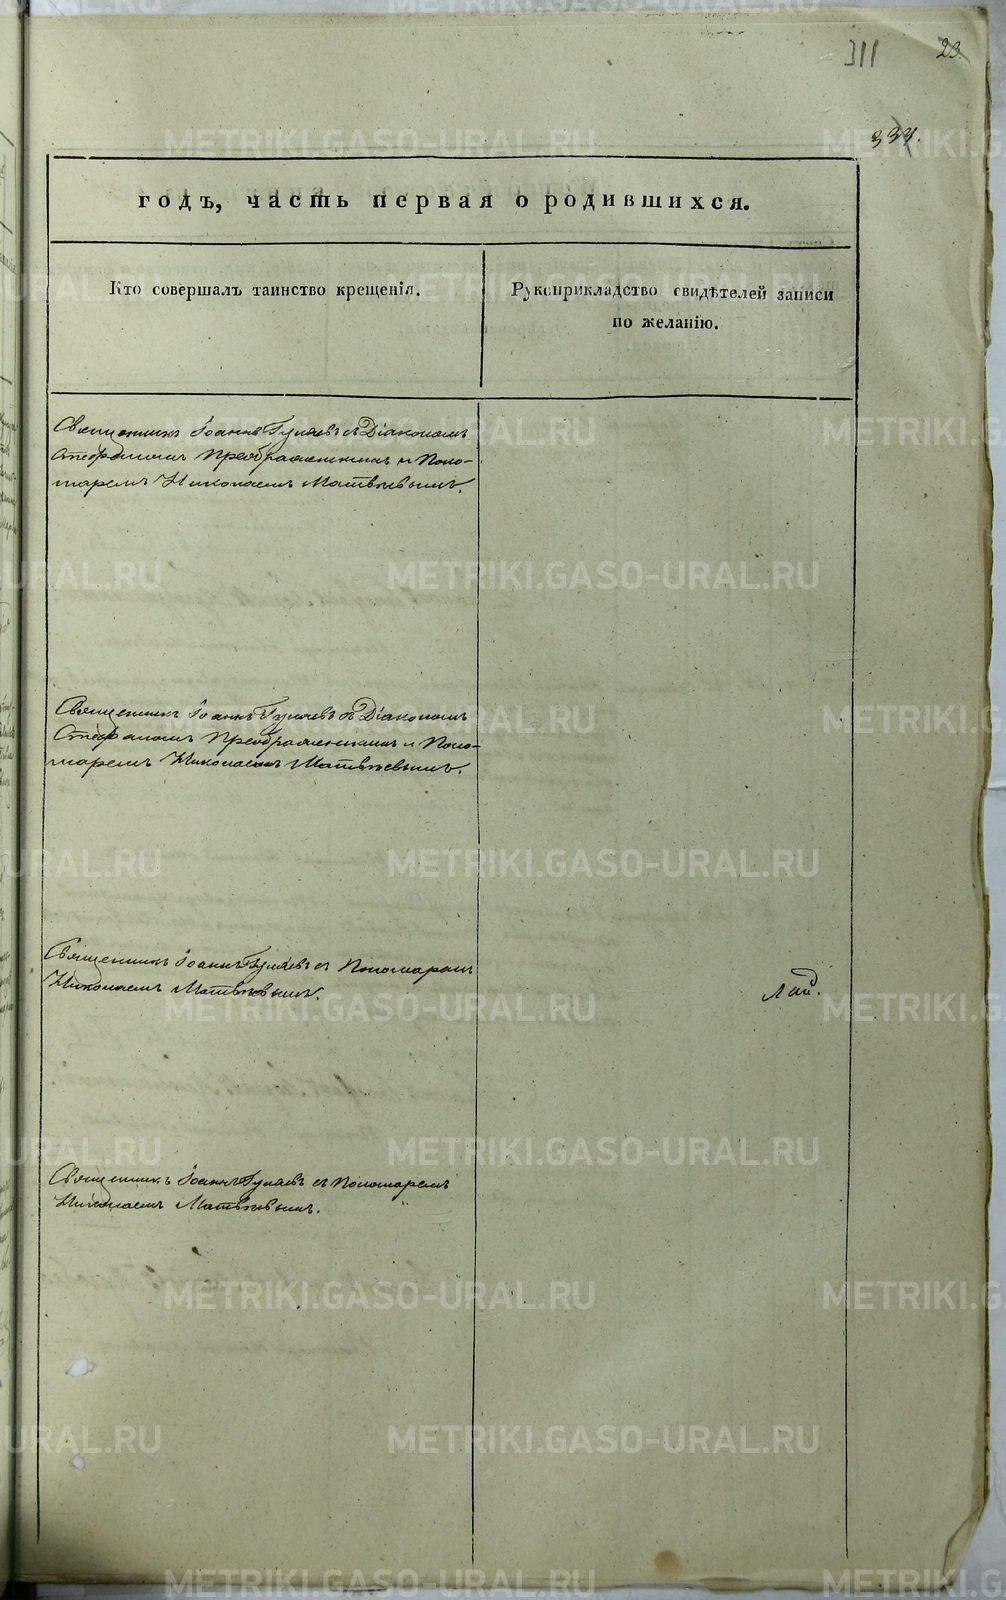 311
23
333.
годъ, часть первая о родившихся.
Кто совершалъ таинство крещенія.
Рукоприкладство свидѣтелей записи
по желанію.
Священникъ Іоаннъ Гуляевъ съ Діакономъ
Стефаномъ Преображенскимъ и Поно-
маремъ Николаемъ Матвѣевымъ.
Священникъ Іоаннъ Гуляевъ съ Діакономъ
Стефаномъ Преображенскимъ и Поно-
маремъ Николаемъ Матвѣевымъ.
Священникъ Іоаннъ Гуляевъ съ Пономаремъ
Николаемъ Матвѣевымъ.
Священникъ Іоаннъ Гуляевъ съ Пономаремъ
Николаемъ Матвѣевымъ.
METRIKI.GASO-URAL.RU